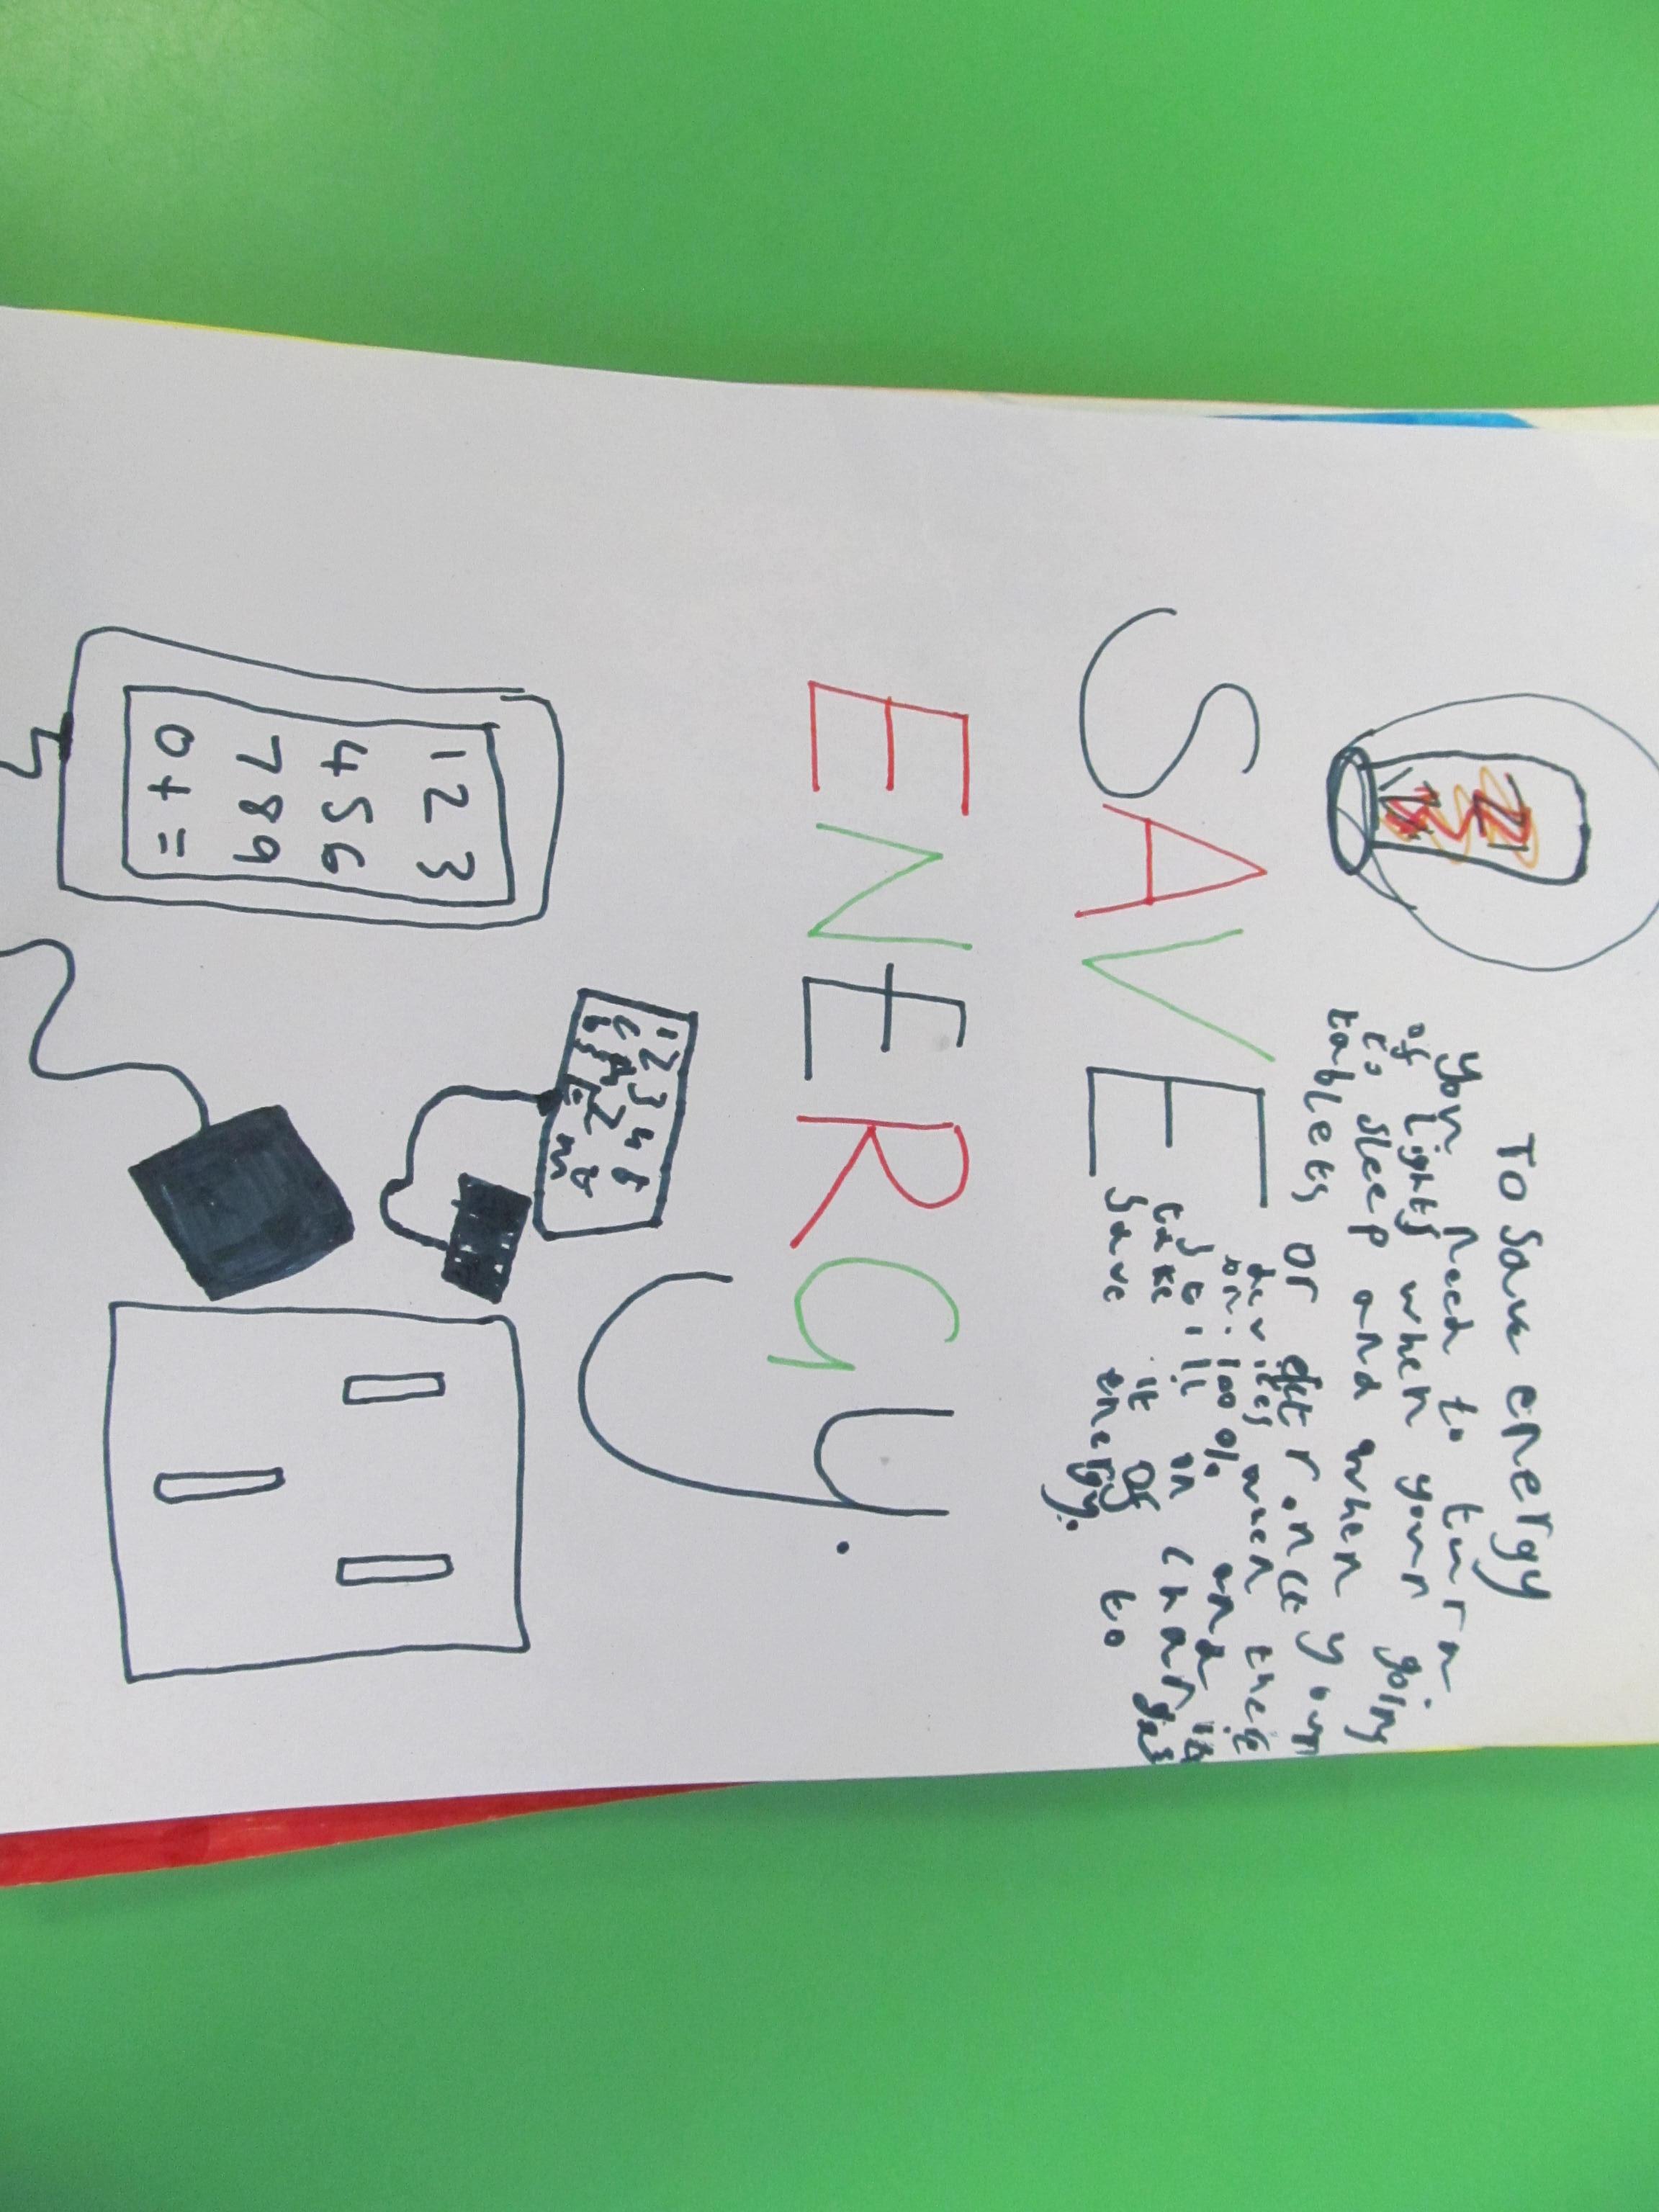 To Save energy
you need to turn
of lights when your going
to sleep and when
tablets or your
devices when
on. 100% and it
still in charges
take it of to
save energy.
SAVE
ENERGY.
1 2 3
4 5 6
7 8 9
0 + =
1 2 3 4 5